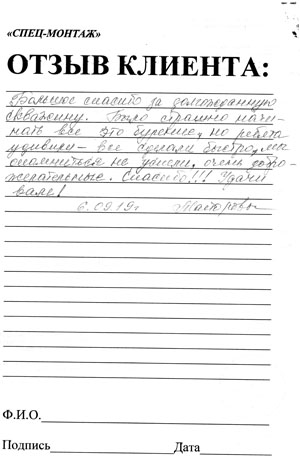 «СПЕЦ-МОНТАЖ»
ОТЗЫВ КЛИЕНТА:
Большое спасибо за долгожданную
скважину. Было страшно начи-
нать все это бурение, но ребята
удивили – все сделали быстро, мы
опомниться не успели, очень добро-
желательные. Спасибо!!! Удачи
вам!
6.09.19г
Ф.И.О.
Подпись Дата